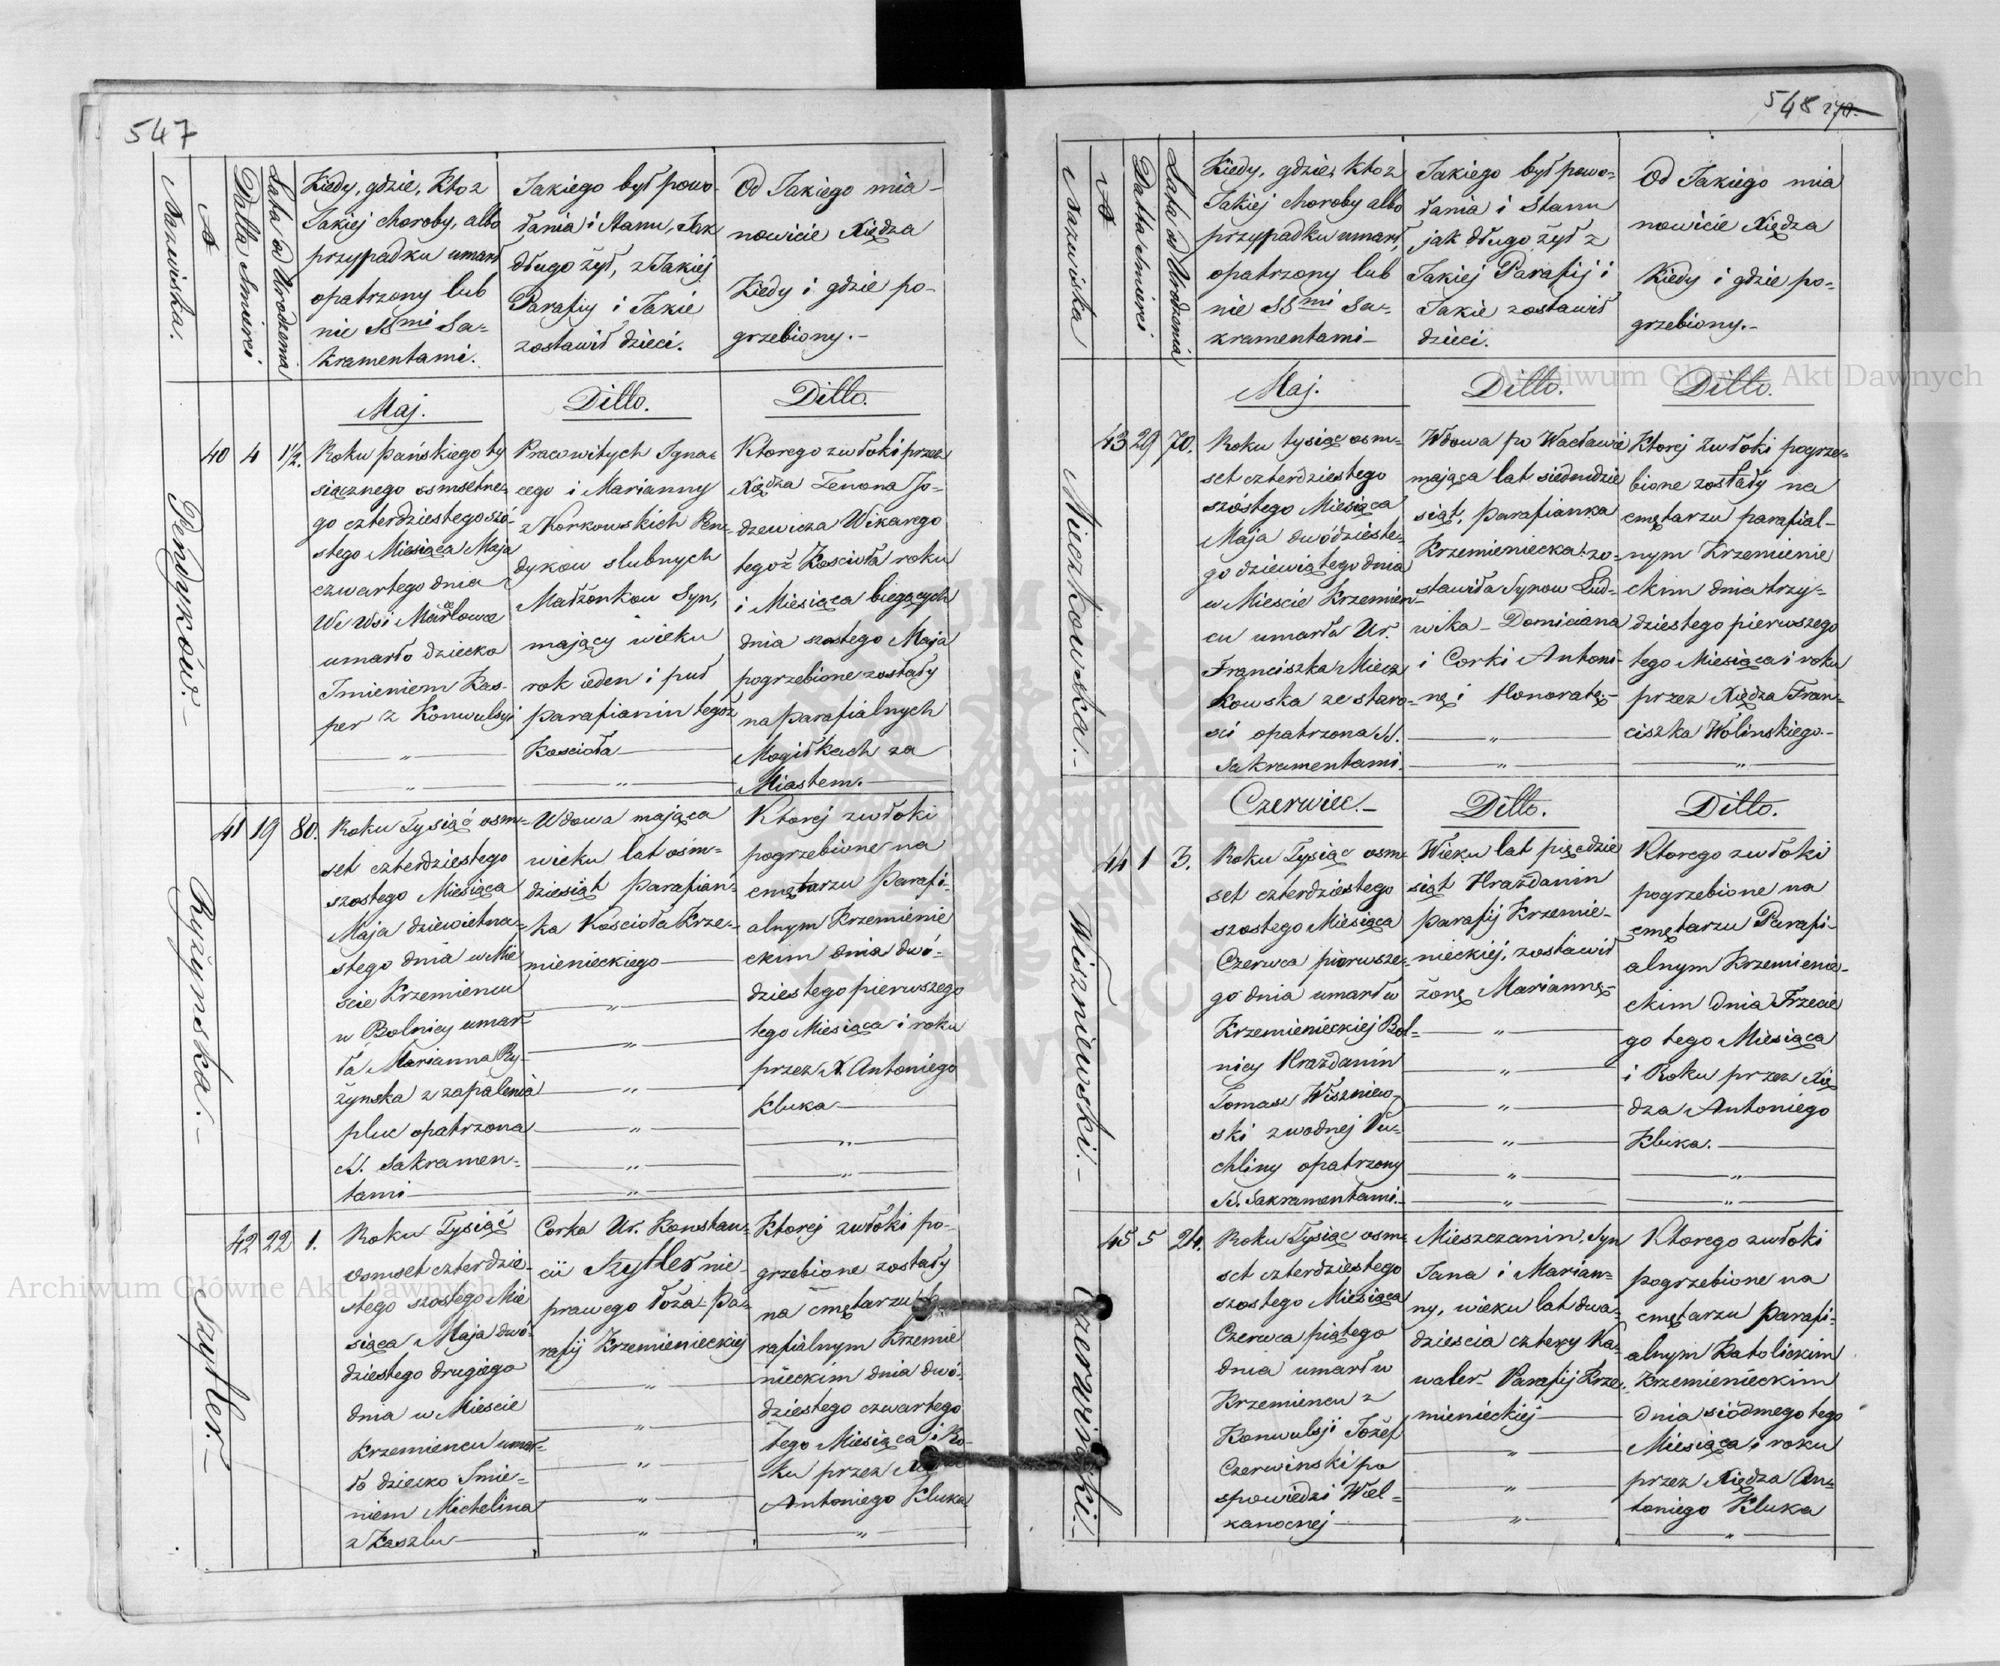 547
Nazwiska.
№
Datta Śmierci
Lata od Urodzenia
Kiedy, gdzie, Kto z
Jakiej choroby, albo
przypadku umarł
opatrzony lub
nie SSmi Sa-
kramentami.
Jakiego był powo-
łania i stanu, Jak
długo żył, z Jakiej
Parafiy i Jakie
zostawił dzieci.
Od Jakiego mia-
nowicie Xiędza
Kiedy i gdzie po-
grzebiony.-
Maj.
Ditto.
Ditto.
40
4
1½.
Roku pańskiego ty
siącznego osmsetne-
go czterdziestego szó-
stego Miesiąca Maja
czwartego dnia
We Wsi
umarło dziecko
Imieniem Kas-
per z Konwulsyi
Pracowitych Igna-
cego i Marianny
z Korkowskich Pen-
dykow slubnych
Małżonkow Syn,
mający wieku
rok ieden i puł
parafianin tegoż
Kościoła
Ktorego zwłoki przez
Xiędza Zenona Jo-
dzewicza Wikarego
tegoż Kościoła roku
i Miesiąca biegących
dnia szostego Maja
pogrzebione zostały
na parafialnych
Mogiłkach za
Miastem.
41
19
80.
Rużynska.-
Roku Tysiąć osm-
set czterdziestego
szostego Miesiąca
Maja dziewietna-
stego dnia w Mie
scie Krzemiencu
w Bolnicy umar-
ła Marianna Ry-
żynska z zapalenia
płuc opatrzona
SS. Sakramen-
tami
Wdowa mająca
wieku lat ośm-
dziesiąt parafian-
ka Kościoła Krze-
mienieckiego
Ktorej zwłoki
pogrzebione na
cmętarzu Parafi-
alnym Krzemienie
ckim dnia dwó-
dziestego pierwszego
tego Miesiąca i roku
przez X. Antoniego
Kluka
42
22
1.
Szytler.-
Roku Tysiąć
osmset czterdzie-
stego szostego Mie
siąca Maja dwó-
dziestego drugiego
dnia w Miescie
Krzemiencu umar-
ło dziecko Imie-
niem Michelina
z Kaszlu
Corka Ur. Konstan-
cii Szytler nie-
prawego łoża. Pa-
rafij Krzemienieckiej
Ktorej zwłoki po-
grzebione zostały
na cmętarzu
rafialnym Krzemie
nieckim dnia dwó-
dziestego czwartego
tego Miesiąca i Ro-
ku przez
Antoniego Kluka
548
Nazwiska
№
Datta Śmierci
Lata od Urodzenia
Kiedy, gdzie, kto z
Jakiej choroby albo
przypadku umarł,
opatrzony lub
nie SSmi Sa-
kramentami-
Jakiego był powo-
łania i Stanu
jak długo żył z
Jakiej Parafij i
Jakie zostawił
dzieci.
Od Jakiego mia
nowicie Xiędza
Kiedy i gdzie po-
grzebiony.-
Maj.
Ditto.
Ditto.
43
29
70.
Mieczkowska.-
Roku tysiąc osm-
set czterdziestego
szóstego Miesiąca
Maja dwódzieste-
go dziewiątego dnia
w Miescie Krzemien-
cu umarła Ur.
Franciszka Miecz
kowska ze staro-
sci opatrzona SS.
Sakramentami.
Wdowa po Wacławie
mająca lat siedmdzie
siąt, parafianka
Krzemieniecka zo-
stawiła Synow Lud-
wika - Domiciana
i Corki Antoni-
nę i Honoratę-
Ktorej zwłoki pogrze-
bione zostały na
cmętarzu parafial-
nym Krzemienie
ckim dnia trzy-
dziestego pierwszego
tego Miesiąca i roku
przez Xiędza Fran-
ciszka Wolinskiego.-
Czerwiec.-
Ditto.
Ditto.
44
1
3.
Wiszniewski.-
Roku Tysiąc osm-
set czterdziestego
szostego Miesiąca
Czerwca pierwsze-
go dnia umarł w
Krzemienieckiej Bol-
nicy Hrażdanin
Tomasz Wiszniew-
ski z wodnej Pu-
chliny opatrzony
SS. Sakramentami.-
Wieku lat pięćdzie
siąt Hrażdanin
parafij Krzemie-
nieckiej, zostawił
żonę Mariannę-
Ktorego zwłoki
pogrzebione na
cmętarzu Parafi-
alnym Krzemienie-
ckim dnia Trzecie
go tego Miesiąca
i Roku przez Xię
dza Antoniego
Kluka.
45
5
24.
Czerwinski.-
Roku Tysiąc osm-
set czterdziestego
szostego Miesiąca
Czerwca piątego
dnia umarł w
Krzemiencu z
Konwulsji Jozef
Czerwinski po
spowiedzi Wiel-
kanocnej
Mieszczanin, Syn
Jana i Marian-
ny, wieku lat dwa-
dziescia cztery Ka-
waler Parafij Krze-
mienieckiej
Ktorego zwłoki
pogrzebione na
cmętarzu parafi-
alnym Katolickim
Krzemienieckim
dnia siódmego tego
Miesiąca i roku
przez Xiędza An-
toniego Kluka
Archiwum Główne Akt Dawnych
Archiwum Główne Akt Dawnych